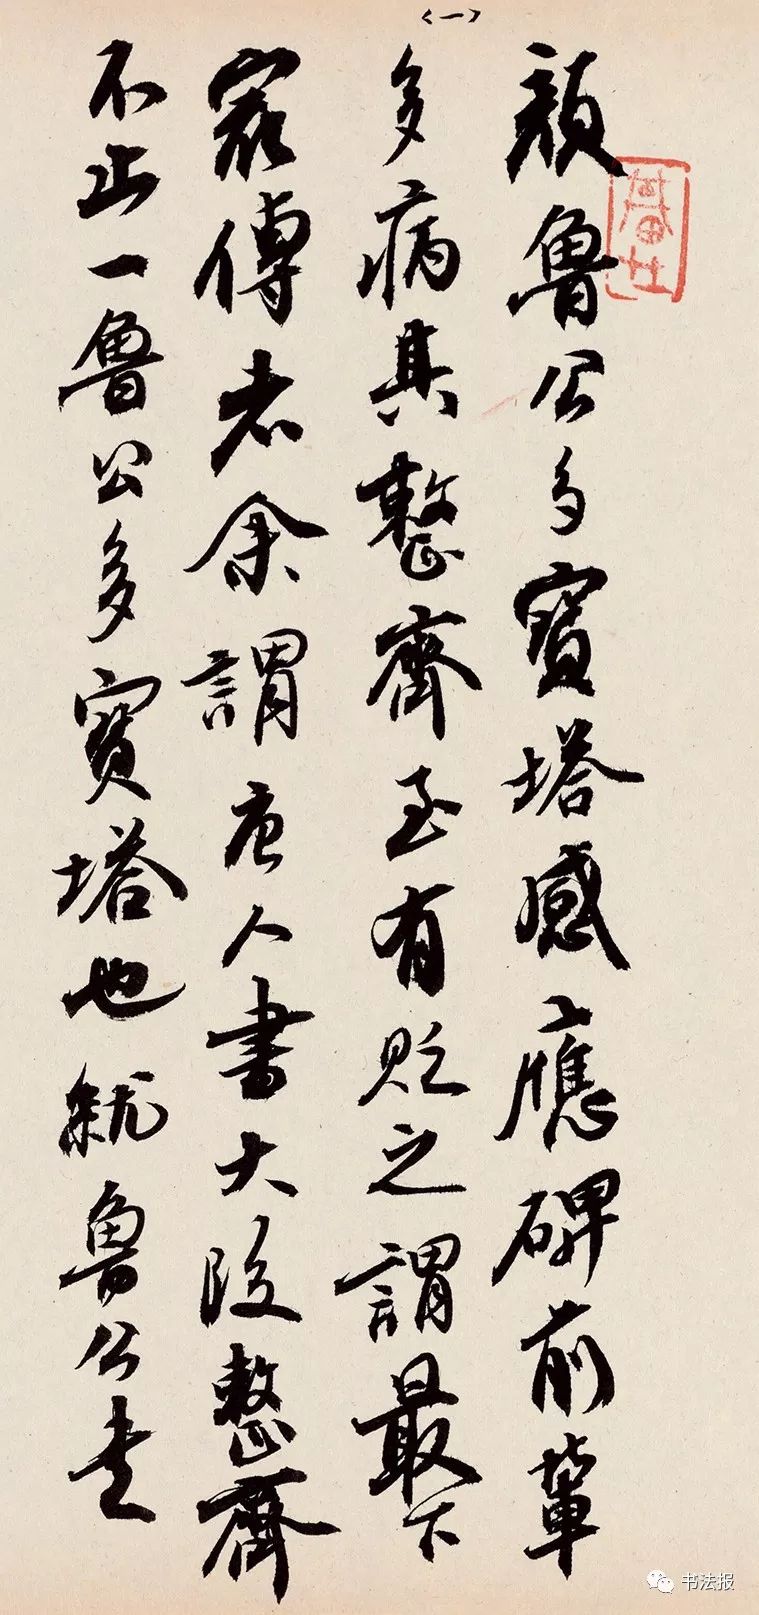 〈一〉
顏魯公多寶塔感應碑前輩
多病其整齊至有貶之謂最下
傳者余謂唐人書大段整齊
不止一魯公多寶塔也就魯公书
书法报